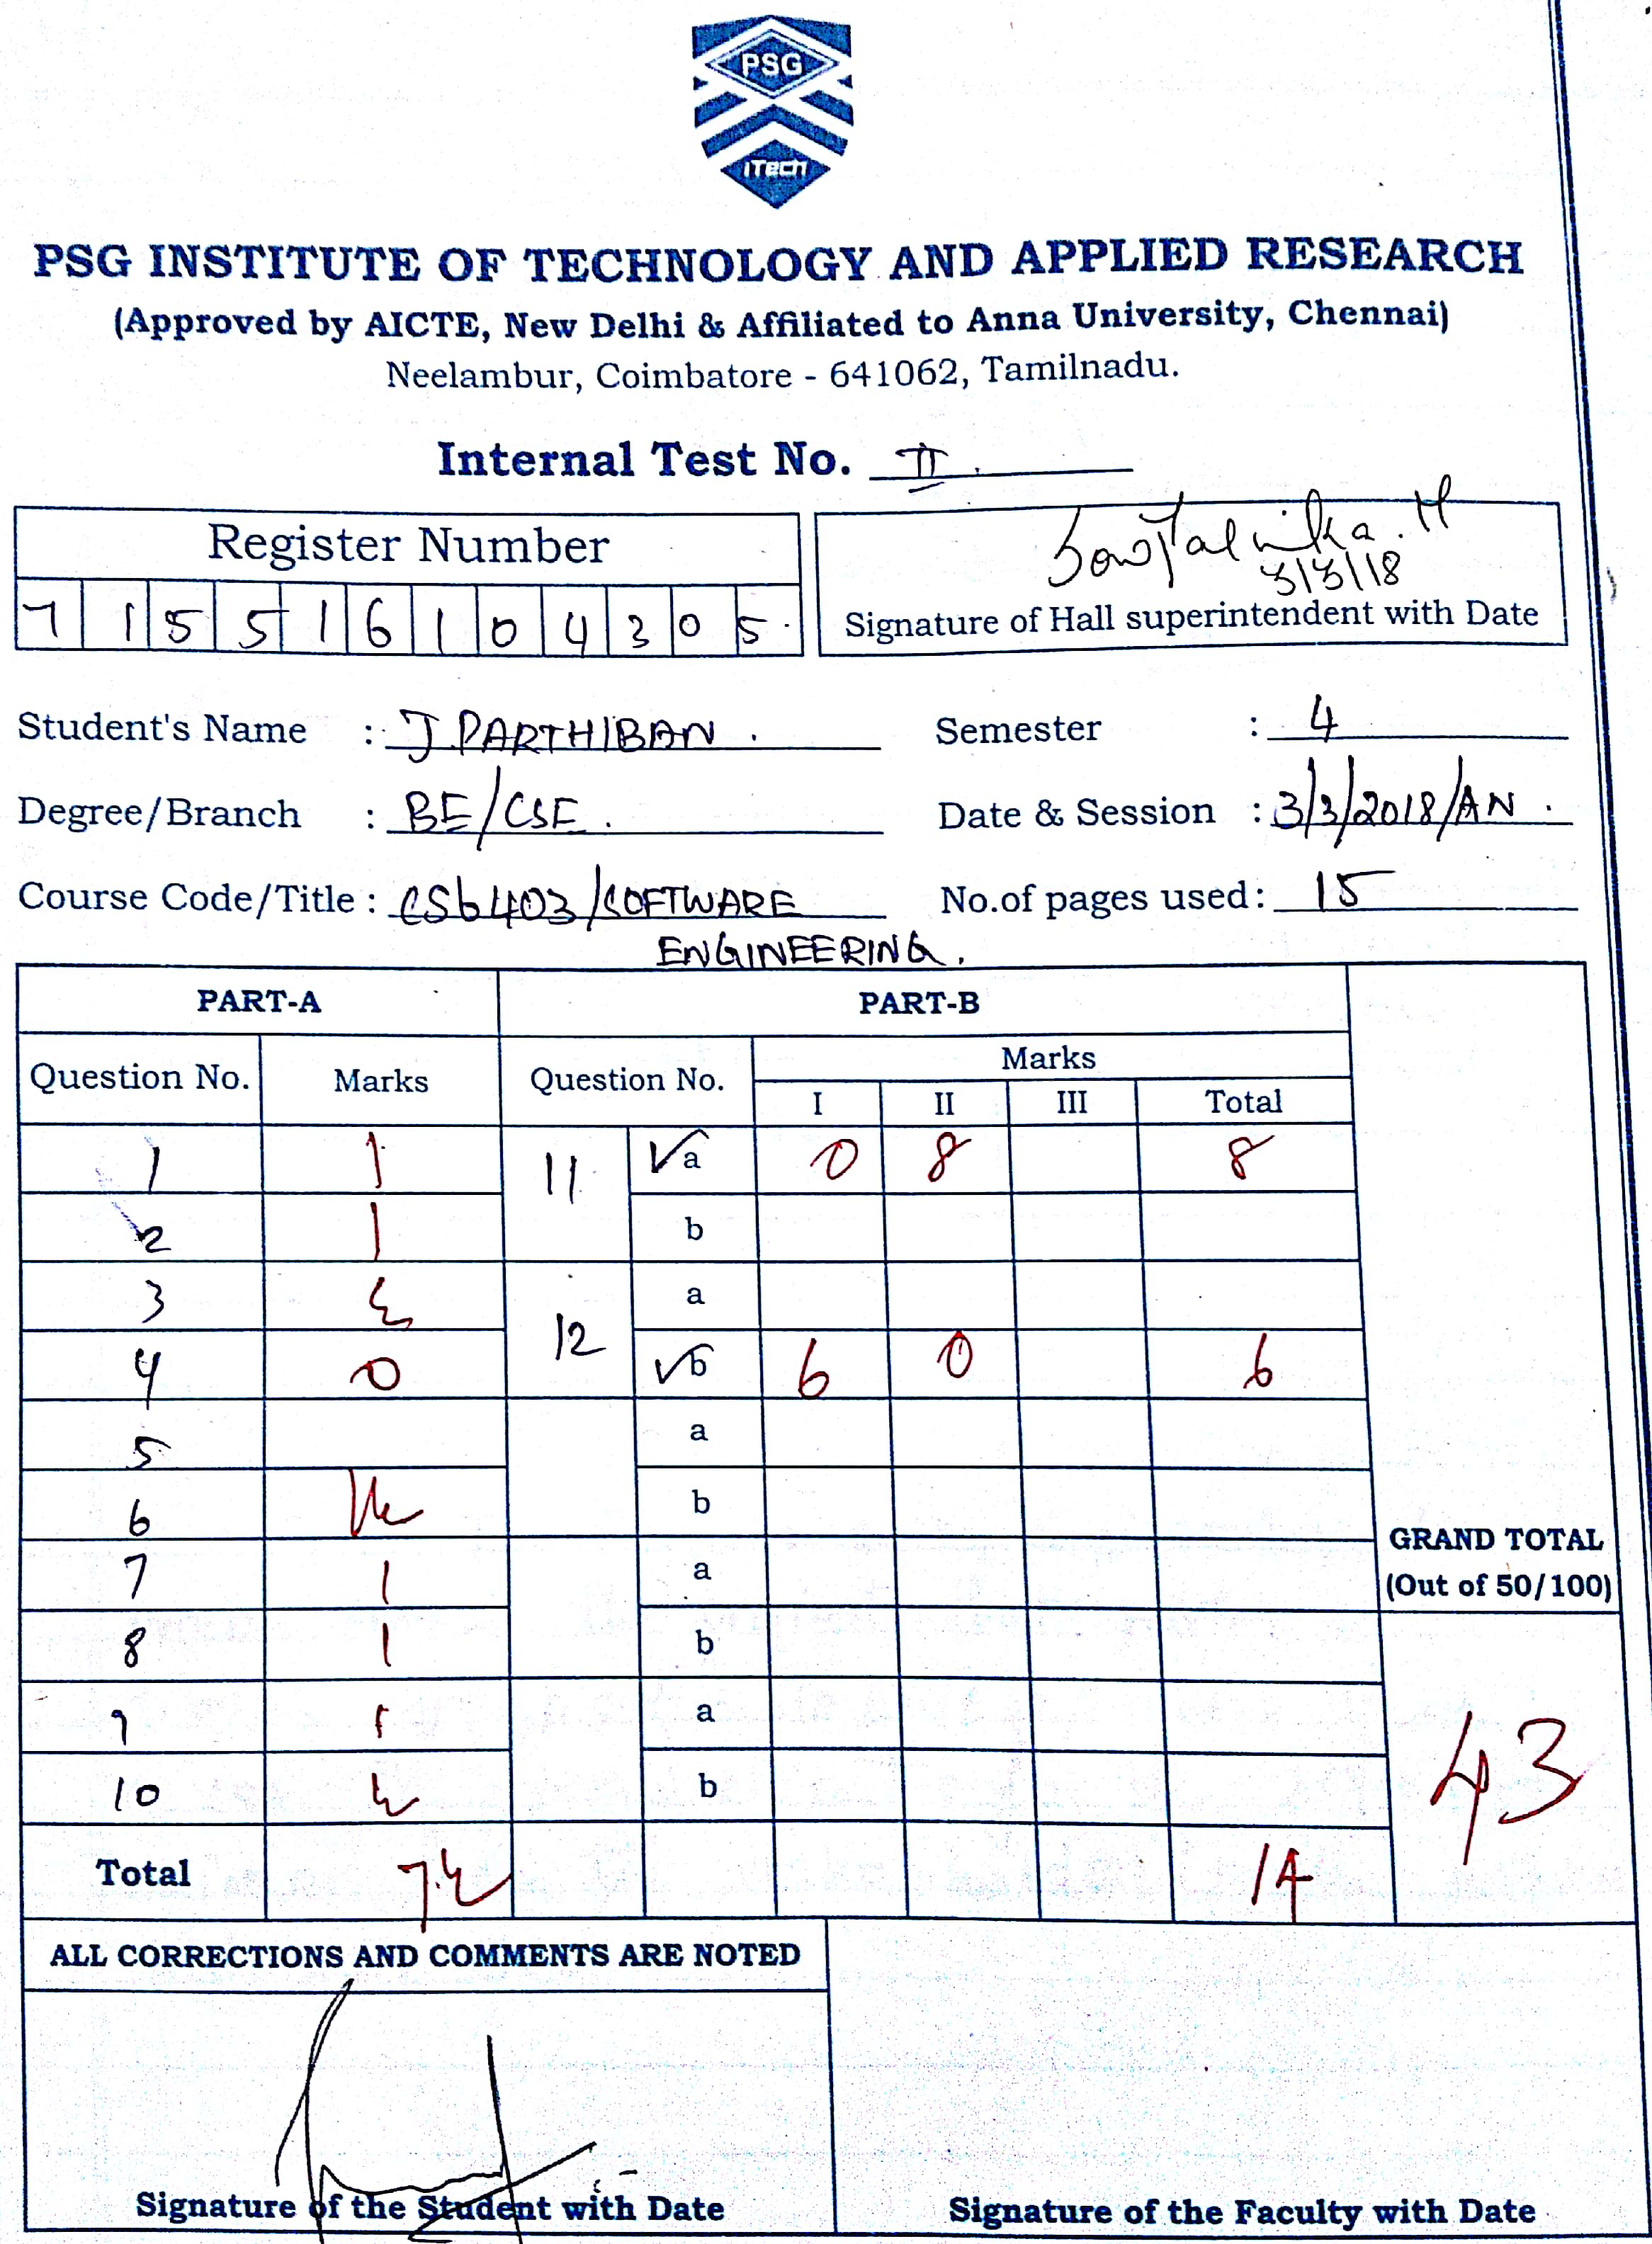 PSG
iTech
PSG INSTITUTE OF TECHNOLOGY AND APPLIED RESEARCH
(Approved by AICTE, New Delhi & Affiliated to Anna University, Chennai)
Neelambur, Coimbatore - 641062, Tamilnadu.
Internal Test No. II.
Register Number
7 1 5 5 1 6 1 0 4 3 0 5
3/3/18
Signature of Hall superintendent with Date
Student's Name : J.PARTHIBAN. Semester : 4
Degree/Branch : BE/CSE. Date & Session : 3/3/2018/AN.
Course Code/Title : CS6403/SOFTWARE No.of pages used: 15
ENGINEERING.
PART-A PART-B
Question No. Marks Question No. Marks
I II III Total
1 1 11 ✓a 0 8 8
2 1 b
3 a
4 0 12 ✓b 6 0 6
5 a
6 b
7 1 a
8 1 b
9 1 a
10 b
GRAND TOTAL
(Out of 50/100)
43
Total 14
ALL CORRECTIONS AND COMMENTS ARE NOTED
Signature of the Student with Date Signature of the Faculty with Date